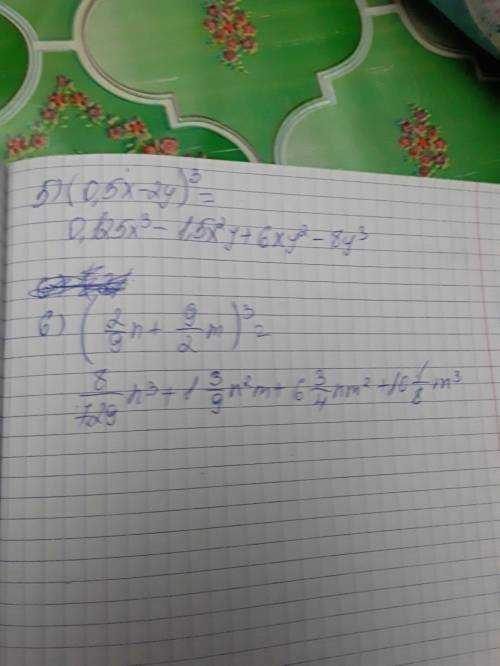 5) (0,5x-2y)³=
0,125x³ - 1,5x²y + 6xy² - 8y³
6) (2/9 n + 9/2 m)³=
8/729 n³ + 1 3/9 n²m + 6 3/4 nm² + 16 1/8 m³